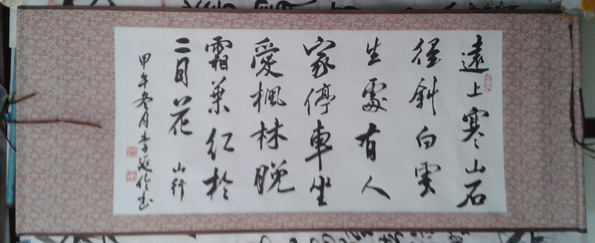 遠上寒山石
徑斜白雲
生處有人
家停車坐
愛楓林晚
霜葉紅於
二月花 山行
甲午冬月李